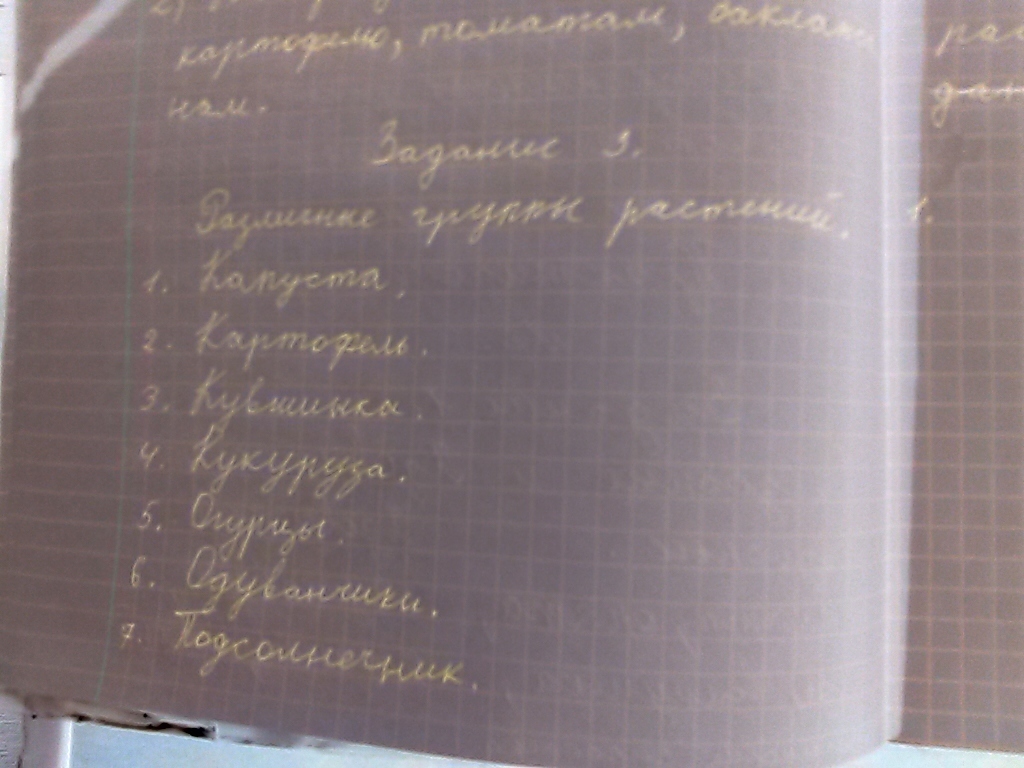 картофелю, томатам, баклажа
нам.
Задание 3.
Различные группы растений.
1. Капуста.
2. Картофель.
3. Кувшинка.
4. Кукуруза.
5. Огурцы.
6. Одуванчики.
7. Подсолнечник.
рас
1.